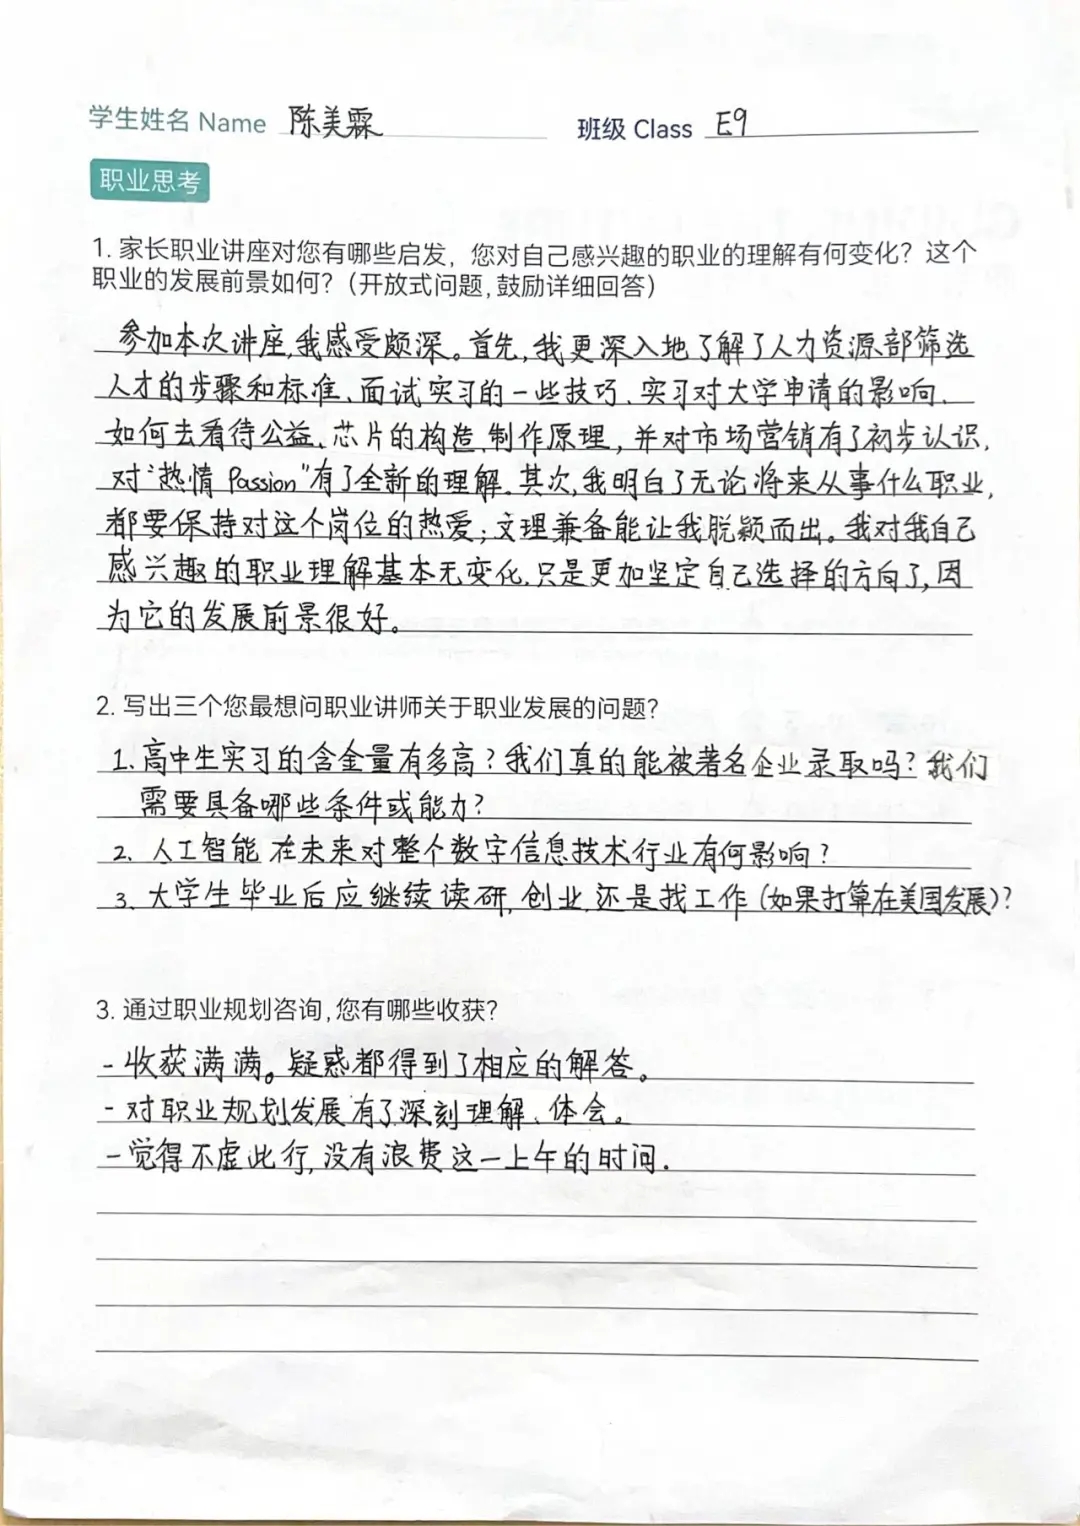 学生姓名 Name 陈美霖 班级 Class E9
职业思考
1. 家长职业讲座对您有哪些启发，您对自己感兴趣的职业的理解有何变化？这个
职业的发展前景如何？（开放式问题，鼓励详细回答）
参加本次讲座，我感受颇深。首先，我更深入地了解了人力资源部筛选
人才的步骤和标准、面试实习的一些技巧、实习对大学申请的影响、
如何去看待公益、芯片的构造、制作原理，并对市场营销有了初步认识，
对“热情 Passion”有了全新的理解。其次，我明白了无论将来从事什么职业，
都要保持对这个岗位的热爱；文理兼备能让我脱颖而出。我对我自己
感兴趣的职业理解基本无变化，只是更加坚定自己选择的方向了，因
为它的发展前景很好。
2. 写出三个您最想问职业讲师关于职业发展的问题？
1. 高中生实习的含金量有多高？我们真的能被著名企业录取吗？我们
需要具备哪些条件或能力？
2. 人工智能在未来对整个数字信息技术行业有何影响？
3. 大学生毕业后应继续读研，创业，还是找工作（如果打算在美国发展）？
3. 通过职业规划咨询，您有哪些收获？
- 收获满满。疑惑都得到了相应的解答。
- 对职业规划发展有了深刻理解、体会。
- 觉得不虚此行，没有浪费这一上午的时间.